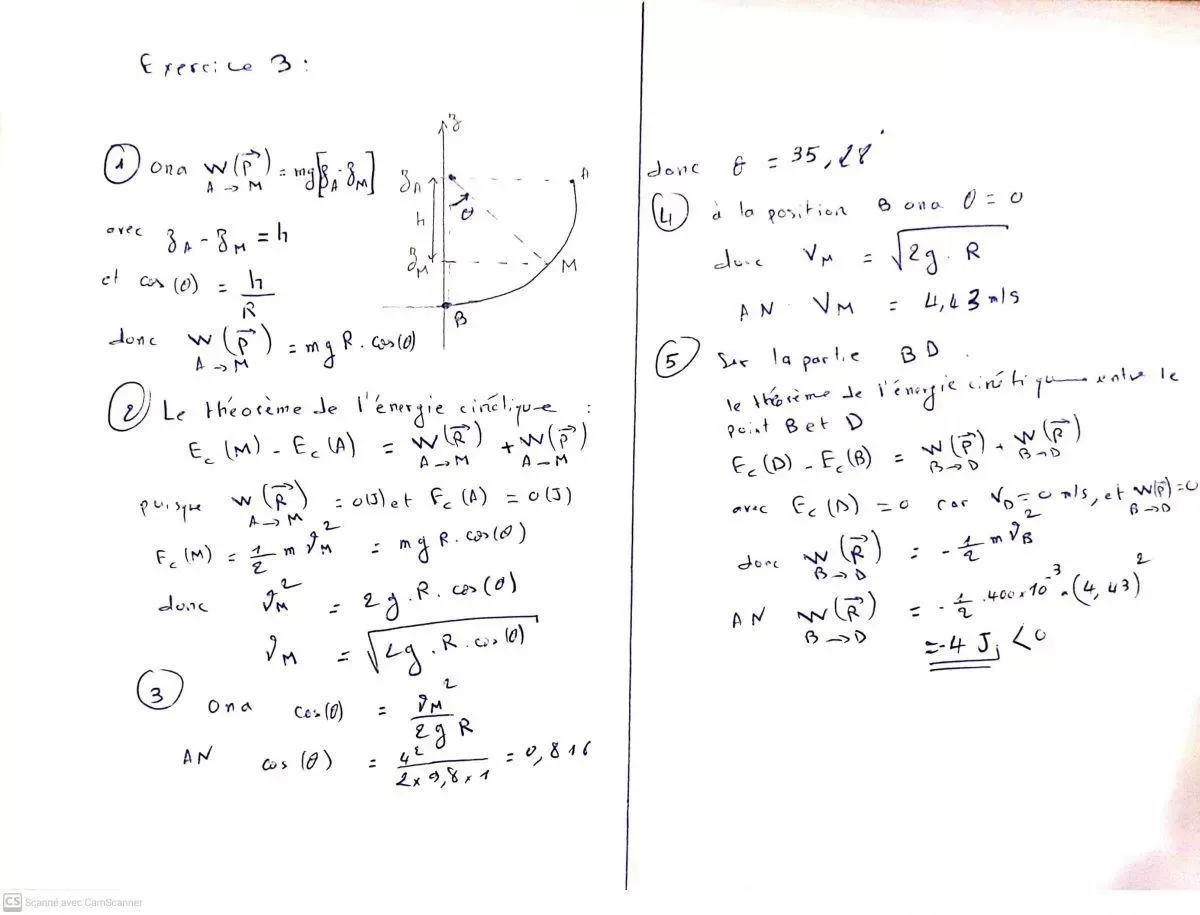 Exercice 3 :
① Ona W(P⃗) A→M = mg[z_A - z_M]
avec z_A - z_M = h
et cos(θ) = h/R
donc W(P⃗) A→M = mg R. cos(θ)
z
z_A
A
θ
h
z_M
M
B
② Le théorème de l'énergie cinétique :
E_c(M) - E_c(A) = W(R⃗) A→M + W(P⃗) A→M
puisque W(R⃗) A→M = 0(J) et E_c(A) = 0(J)
E_c(M) = 1/2 m v_M² = mg R. cos(θ)
donc v_M² = 2g.R. cos(θ)
v_M = √(2g.R.cos(θ))
③ Ona cos(θ) = v_M²/2gR
AN cos(θ) = 4²/(2×9,8×1) = 0,816
donc θ = 35,28°
④ à la position B ona θ = 0
donc V_M = √(2g.R)
AN V_M = 4,43 m/s
⑤ Sur la partie BD.
le théorème de l'énergie cinétique entre le
point B et D
E_c(D) - E_c(B) = W(P⃗) B→D + W(R⃗) B→D
avec E_c(D) = 0 car V_D = 0 m/s, et W(P⃗) B→D = 0
donc W(R⃗) B→D = -1/2 m v_B²
AN W(R⃗) B→D = -1/2 .400×10⁻³.(4,43)²
=-4 J, <0
CS Scanné avec CamScanner